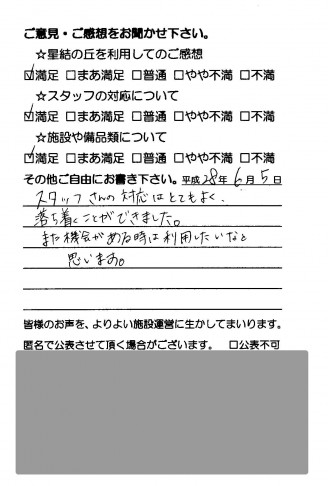 ご意見・ご感想をお聞かせ下さい。
☆星結の丘を利用してのご感想
☑満足 □まあ満足 □普通 □やや不満 □不満
☆スタッフの対応について
☑満足 □まあ満足 □普通 □やや不満 □不満
☆施設や備品類について
☑満足 □まあ満足 □普通 □やや不満 □不満
その他ご自由にお書き下さい。平成28年6月5日
スタッフさんの対応はとてもよく、
落ち着くことができました。
また機会がある時は利用したいなと
思います。
皆様のお声を、よりよい施設運営に生かしてまいります。
匿名で公表させて頂く場合がございます。 □公表不可